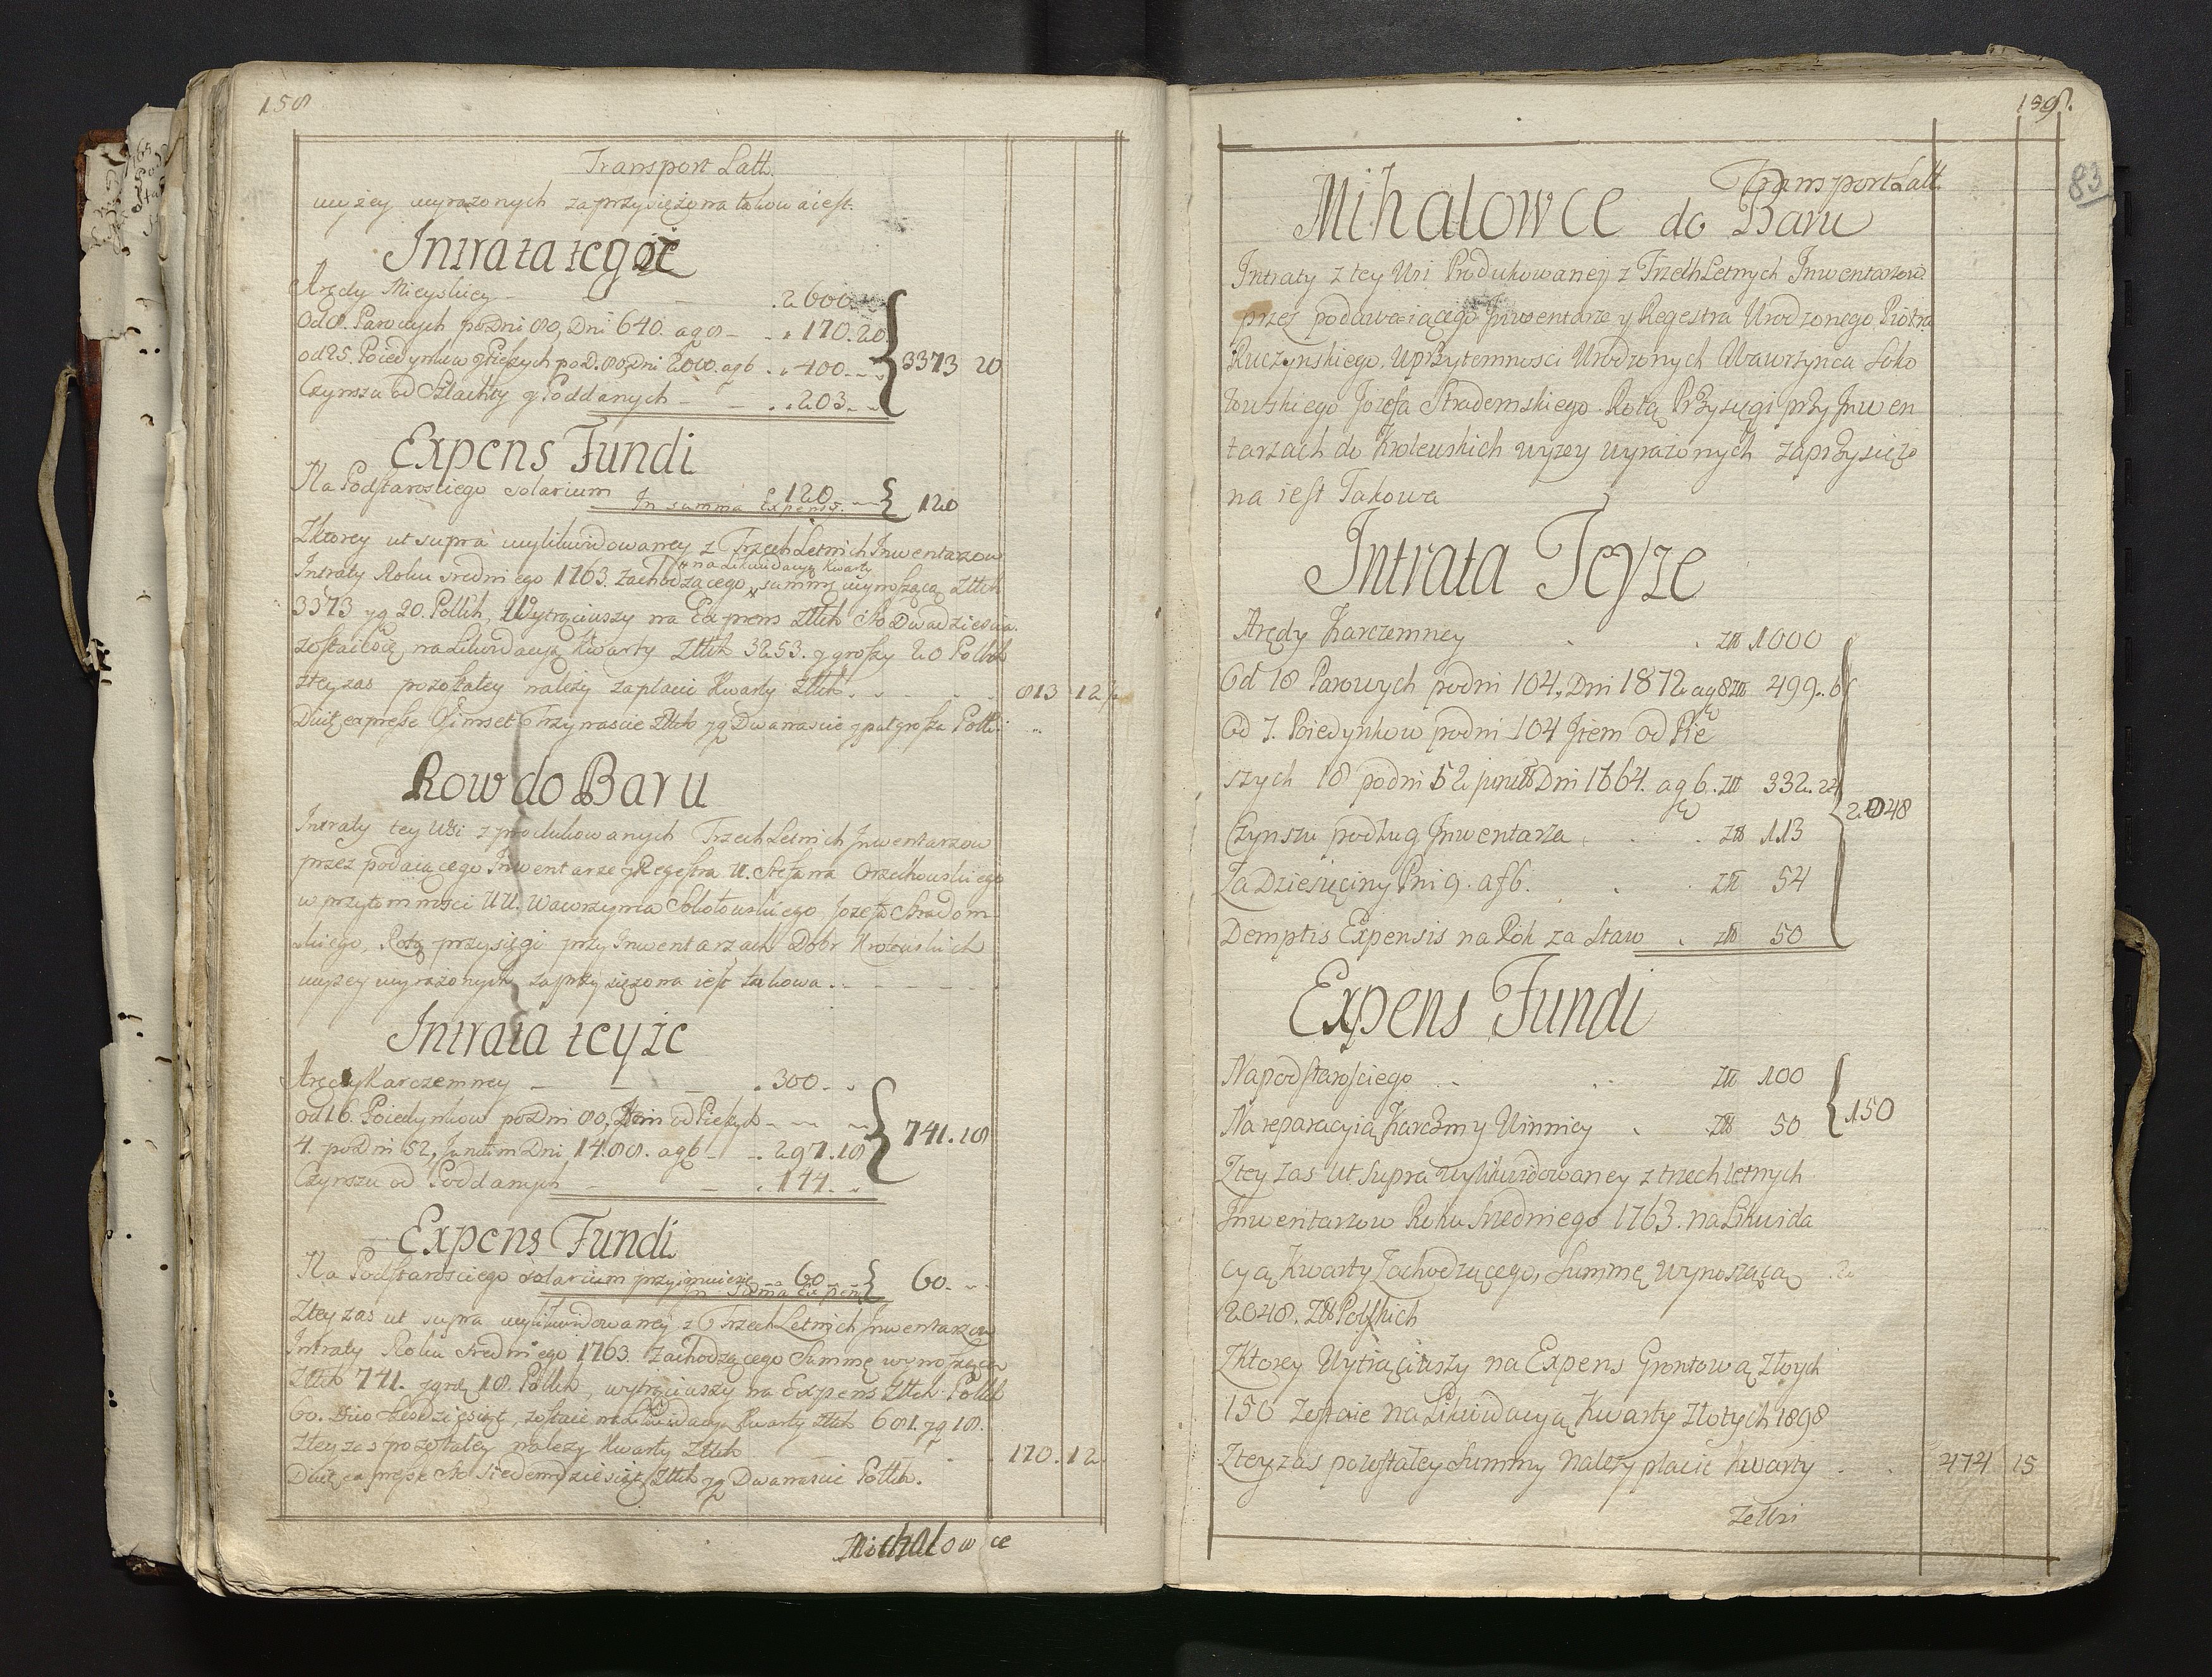 158
Transport Latt.
wyżey wyrazonych zaprzysiężona takowa iest.
Intrata tegoż
Arędy Mieyskiey . 2600
Od 8. Parowych po Dni 80, Dni 640. a g 8 170.20
od 25. Poiedynkow y Pieszych po D. 80, Dni 2000. a g 6 . 400
Czynszu od Szlachty y Poddanych . 203
3373 20
Expens Fundi
Na Podstarosciego solarium 120
In summa Expensy. 120
Zktorey ut supra wylikwidowaney z Trzech Letnich Inwentarzow
na Likwidacyą Kwarty
Intraty Roku sredniego 1763. zachodzącego, summę wynoszącą Złłch
3373 y g 20. Pollch, Wytrąciwszy na Expens Złłch Sto Dwadziescia.
zostaie się na Likwidacyą Kwarty Złłch 3253. y groszy 20 Pollch
ztey zas pozostałey nalezy zapłacic Kwarty Złłch . 813 12 ½
Dico expresse Osimset Trzynascie Złłch y g Dwanascie y puł grosza Polł:
Row do Baru
Intraty tey Wsi z produkowanych Trzech Letnich Inwentarzow
przez podaiącego Inwentarze y Regestra U. Stefana Orzechowskiego
w przytomnosci UU. Wawrzynca Sokołowskiego Jozefa Stradom-
skiego, Rotą przysięgi przy Inwentarzach Dobr Krolewskich
wyzey wyrażonych zaprzysiężona iest takowa.
Intrata teyże
Arędy Karczemney . 300
od 16. Poiedynkow po Dni 80, Item od Pieszych
4. po Dni 52, Junctim Dni 1488. a g 6 . 297.18
Czynszu od Poddanych . 144
741.18
Expens Fundi
Na Podstarosciego solarium przyimuie się 60
In Summa Expens 60.
Ztey zas ut supra wylikwidowaney z Trzech Letnich Inwentarzow
Intraty Roku sredniego 1763. zachodzącego Summę wynoszącą
Złłch 741. y grzy 18. Pollch, wytrąciwszy na Expens Złłch Pollch
60. Dico szescdziesiąt, zostaie na Likwidacyą Kwarty Złłch 681. y g 18.
Ztey zas pozostałey nalezy Kwarty Złłch 170. 12
Dico expresse Sto Siedemdziesiąt Złłch y g Dwanascie Pollch.
Michalowce
159.
83
Transport Latt.
Mihalowce do Baru
Intraty z tey Wsi Produkowaney z Trzech Letnych Inwentarzow
przez podawaiącego Inwentarze y Regestra Urodzonego Piotra
Ruczynskiego, w Przytemnosci Urodzonych Wawrzynca Soko
łowskiego Jozefa Strademskiego Rotą Przysięgi przy Inwen
tarzach do Krolewskich wyzey wyrażonych zaprzysięzo
na iest Takowa
Intrata Teyze
Arędy Karczemney . Złł 1000
Od 18 Parowych po dni 104, Dni 1872 a g 8 Złł 499.6
Od 7. Poiedynkow po dni 104 Item od Pie
szych 18 po dni 52 junctt Dni 1664. a g 6. Złł 332.24
Czynszu podług Inwentarza . Złł 113
Za Dziesięciny Pni 9. a f 6. Złł 54
Demptis Expensis na Rok za Staw . Złł 50
2048
Expens Fundi
Na podstarosciego Złł 100
Na reparacyią Karczmy Winnicy . Złł 50
150
Ztey zas ut Supra wylikwidowaney z trzech letnych
Inwentarzow Roku Sredniego 1763. na Likwida
cyą Kwarty Zachodzącego, Summę wynoszącą
2048. Złł Polskich
Zktorey Wytrąciwszy na Expens Grontową Złotych
150 Zostaie na Likwidacyą Kwarty Złotych 1898
Ztey zas pozostałey Summy Nalezy płacic Kwarty 474 15
Ze Wsi